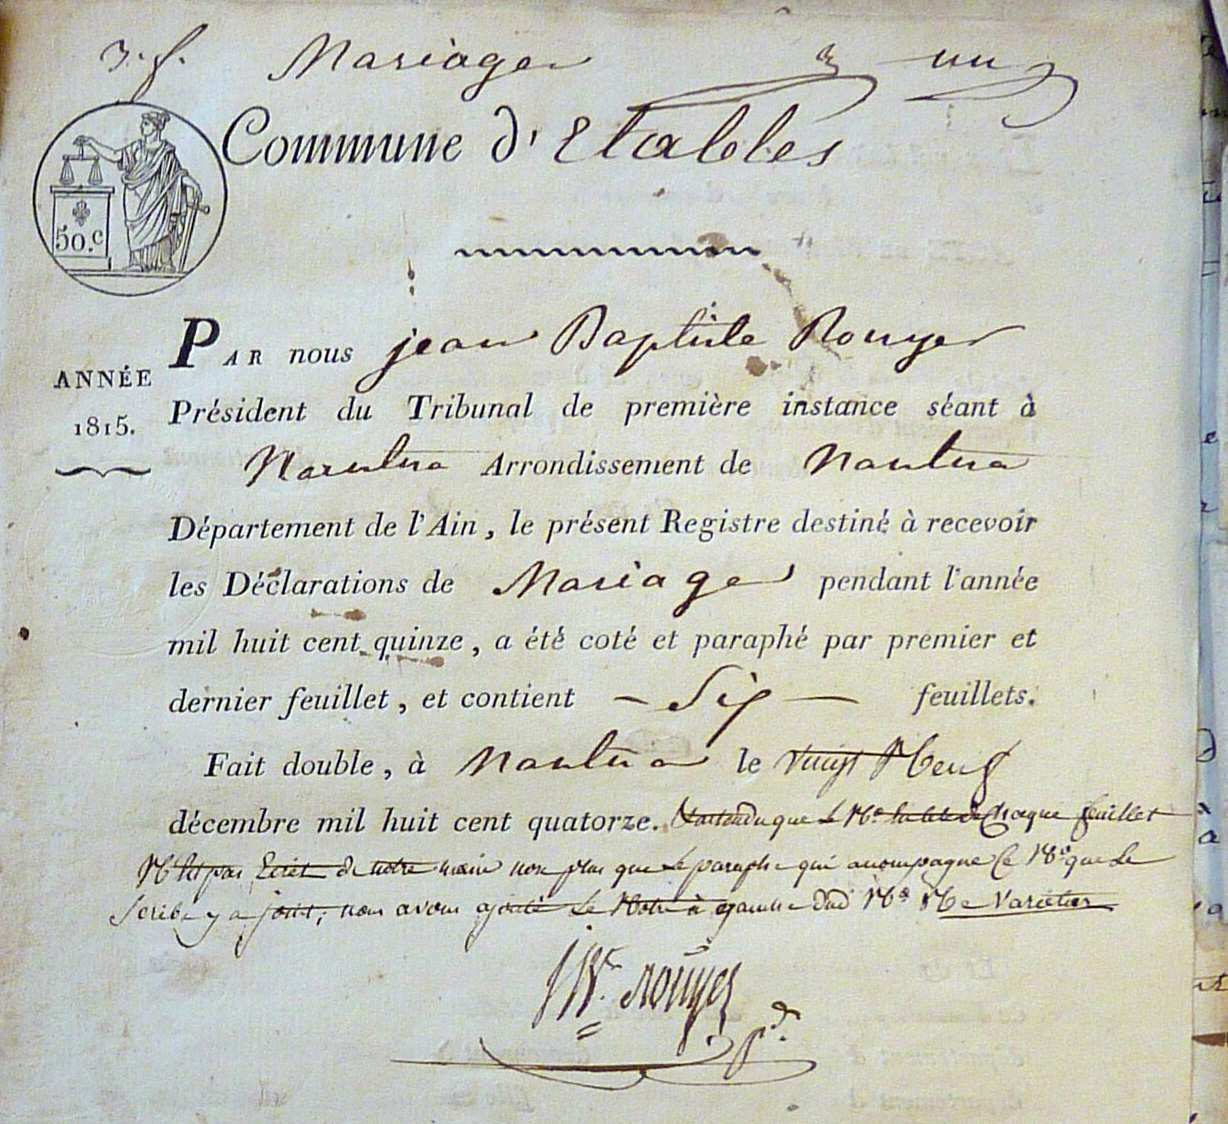 3. f. Mariage un
Commune d'Etables
50.c
ANNÉE
1815.
PAR nous jean Baptiste Rouyer
Président du Tribunal de première instance séant à
Nantua Arrondissement de Nantua
Département de l'Ain, le présent Registre destiné à recevoir
les Déclarations de Mariage pendant l'année
mil huit cent quinze, a été coté et paraphé par premier et
dernier feuillet, et contient – Six – feuillets.
Fait double, à Nantua le vingt Neuf
décembre mil huit cent quatorze. que le N° de chaque feuillet
N'est pas Ecrit de notre main non plus que le paraphe qui accompagne ce N° que le
scribe y a joint, nous avons ajouté le Notre à gauche dud N° Ne Varietur
Rouyer